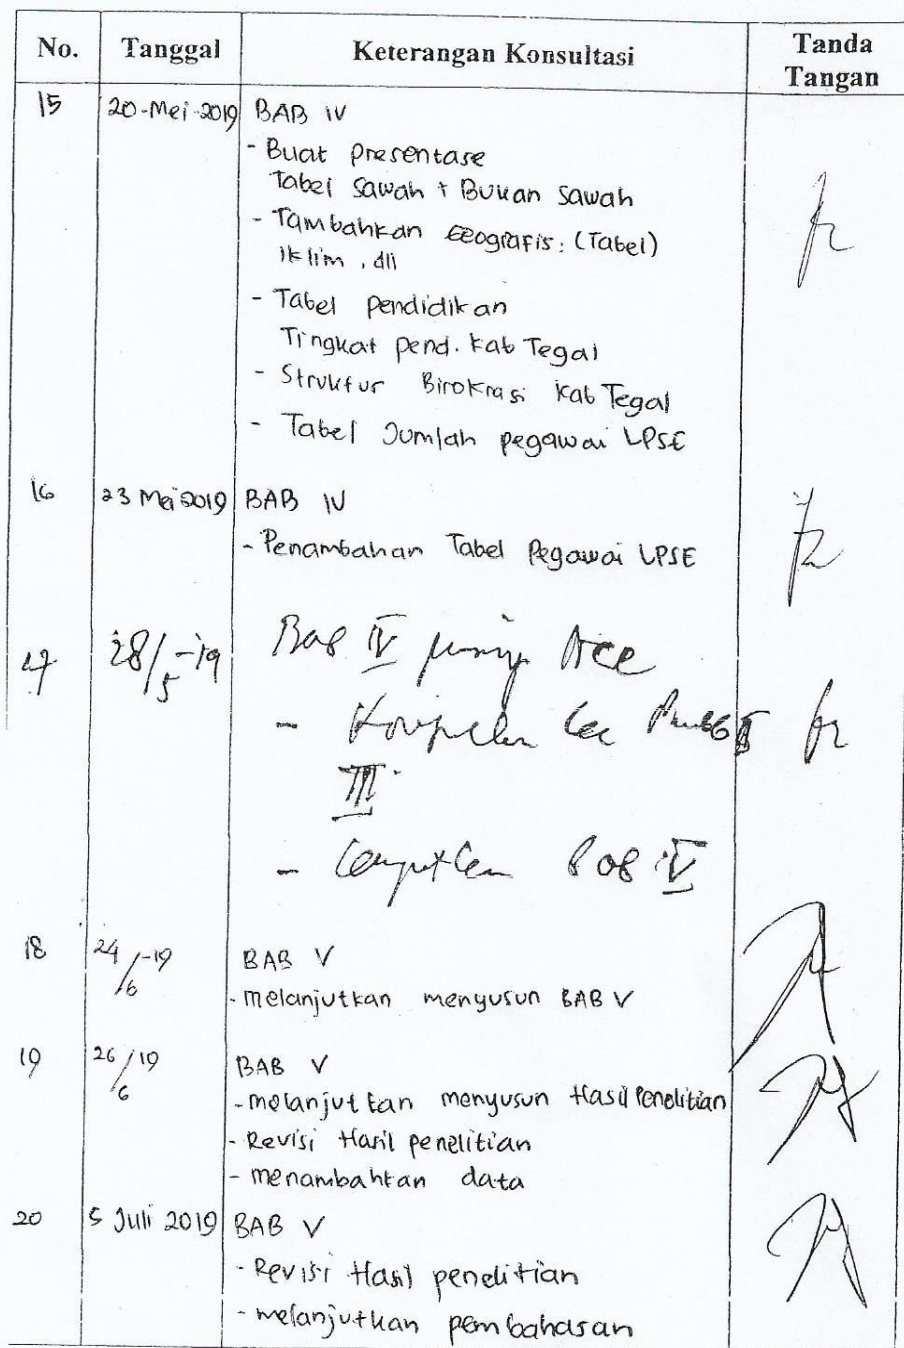 No. Tanggal Keterangan Konsultasi Tanda Tangan
15 20-Mei-2019 BAB IV
- Buat presentase
Tabel sawah + Bukan sawah
- Tambahkan Geografis: (Tabel)
iklim, dll
- Tabel pendidikan
Tingkat pend. kab Tegal
- Struktur Birokrasi kab Tegal
- Tabel Jumlah pegawai LPSE
16 23 Mei 2019 BAB IV
- Penambahan Tabel Pegawai LPSE
17 28/5-19 Bab IV Acc
-
III
- Bab IV
18 24/6-19 BAB V
- melanjutkan menyusun BAB V
19 26/6 19 BAB V
- melanjutkan menyusun Hasil Penelitian
- Revisi Hasil penelitian
- menambahkan data
20 5 Juli 2019 BAB V
- Revisi Hasil penelitian
- melanjutkan pembahasan